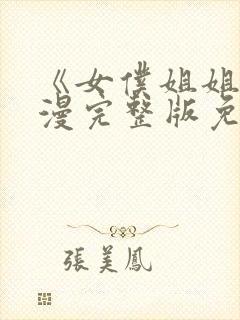 《女僕姐姐
漫完整版免
張美鳳